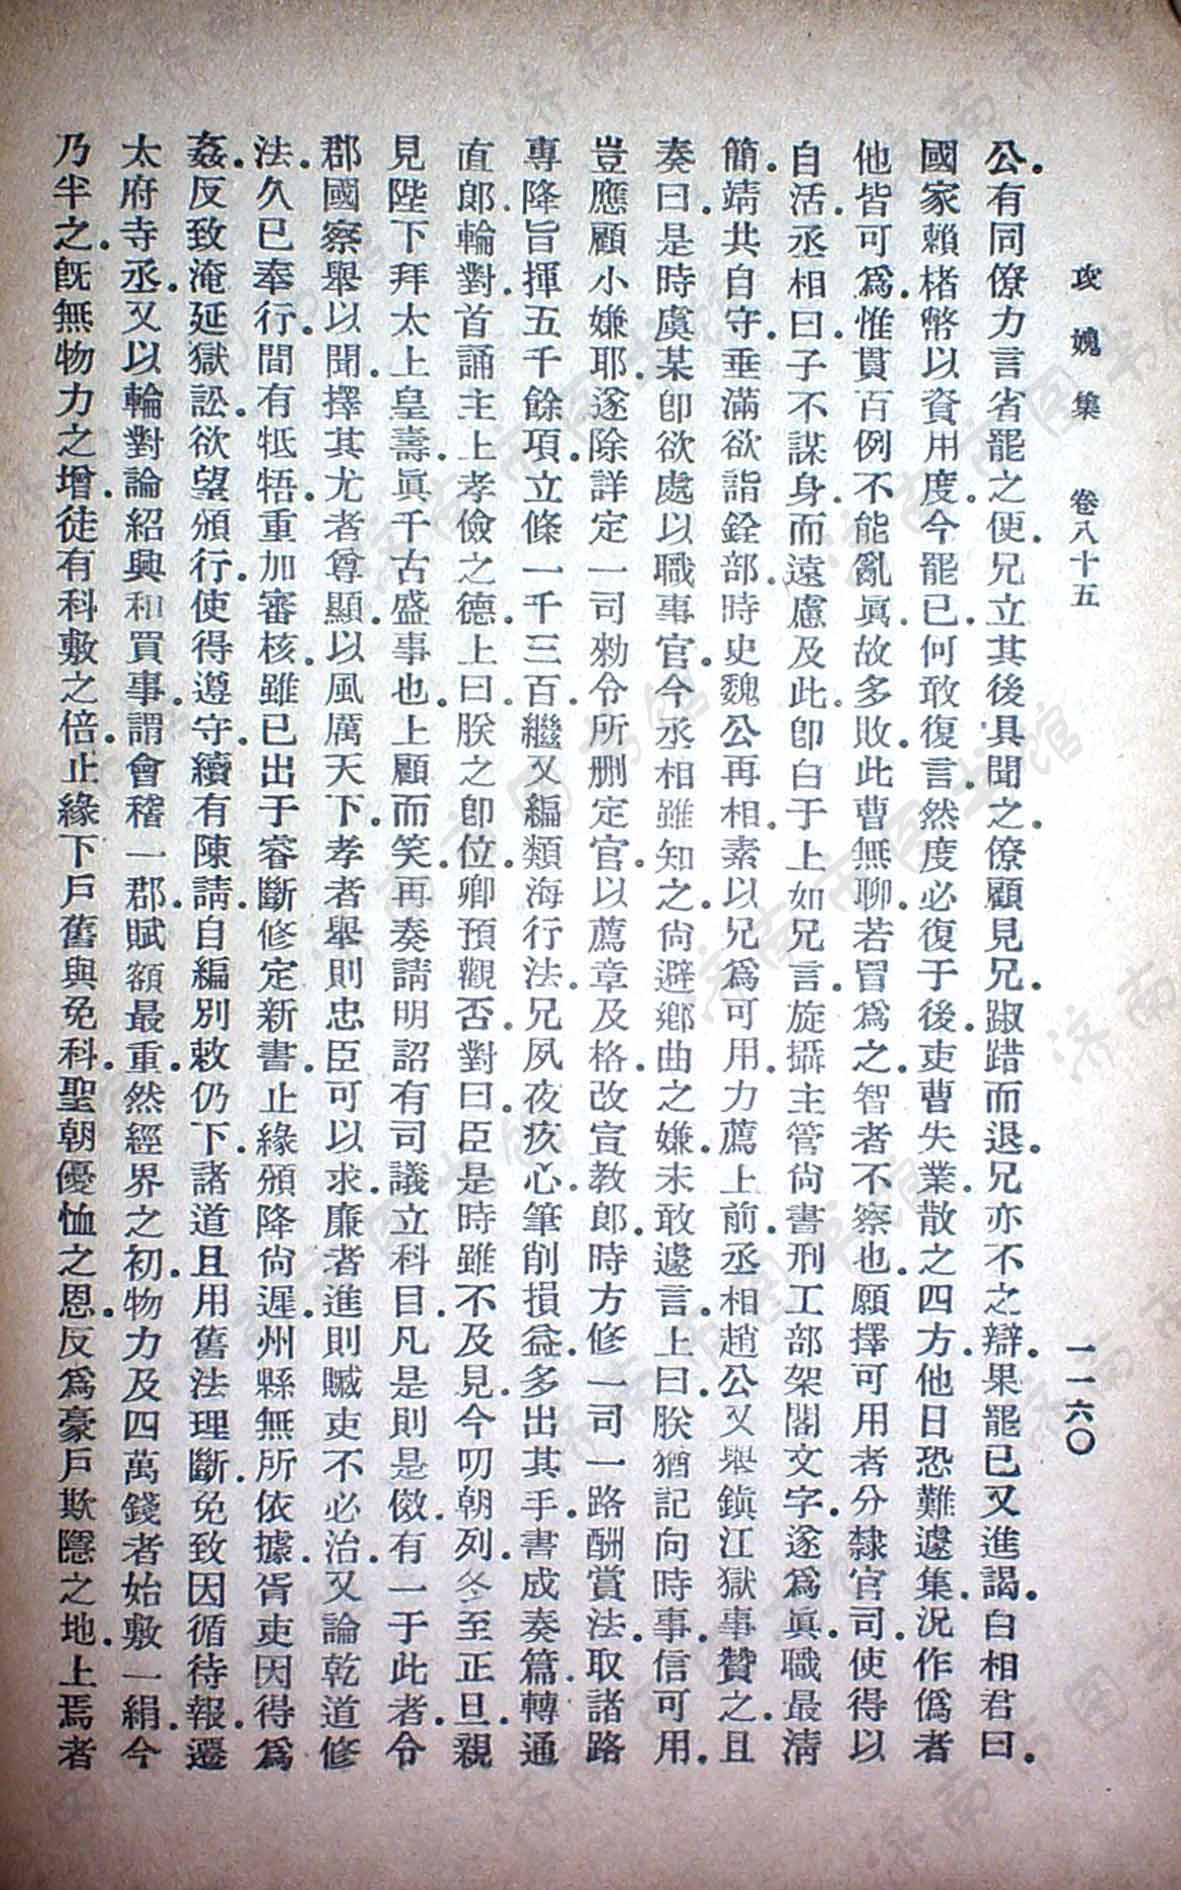 攻媿集　卷八十五　一一六〇
公。有同僚力言省罷之便。兄立其後具聞之。僚顧見兄。踧踖而退。兄亦不之辯。果罷已又進謁。白相君曰。
國家賴楮幣以資用度。今罷已。何敢復言。然度必復于後。吏曹失業。散之四方。他日恐難遽集。況作僞者
他皆可爲。惟貫百例不能亂眞。故多敗。此曹無聊。若冒爲之。智者不察也。願擇可用者。分隸官司。使得以
自活。丞相曰。子不謀身。而遠慮及此。卽白于上如兄言。旋攝主管尙書刑工部架閣文字。遂爲眞。職最淸
簡。靖共自守。垂滿欲詣銓部。時史魏公再相。素以兄爲可用。力薦上前。丞相趙公又舉鎭江獄事贊之。且
奏曰。是時虞某卽欲處以職事官。今丞相雖知之。尙避鄉曲之嫌。未敢遽言。上曰。朕猶記向時事。信可用。
豈應顧小嫌耶。遂除詳定一司勑令所删定官。以薦章及格。改宣教郞。時方修一司一路酬賞法。取諸路
專降旨揮五千餘項。立條一千三百。繼又編類海行法。兄夙夜疚心。筆削損益。多出其手。書成奏篇。轉通
直郞。輪對。首誦主上孝儉之德。上曰。朕之卽位。卿預觀否。對曰。臣是時雖不及見。今叨朝列。冬至正旦。親
見陛下拜太上皇壽。眞千古盛事也。上顧而笑。再奏請明詔有司議立科目。凡是則是傚。有一于此者。令
郡國察舉以聞。擇其尤者尊顯。以風厲天下。孝者舉則忠臣可以求。廉者進則贓吏不必治。又論乾道修
法。久已奉行。間有牴牾。重加審核。雖已出于睿斷。修定新書。止緣頒降尙遲。州縣無所依據。胥吏因得爲
姦。反致淹延獄訟。欲望頒行。使得遵守。續有陳請。自編別敕。仍下諸道。且用舊法理斷。免致因循待報。遷
太府寺丞。又以輪對論紹興和買事。謂會稽一郡。賦額最重。然經界之初。物力及四萬錢者。始敷一絹。今
乃半之。旣無物力之增。徒有科敷之倍。止緣下戶舊與免科。聖朝優恤之恩。反爲豪戶欺隱之地。上焉者